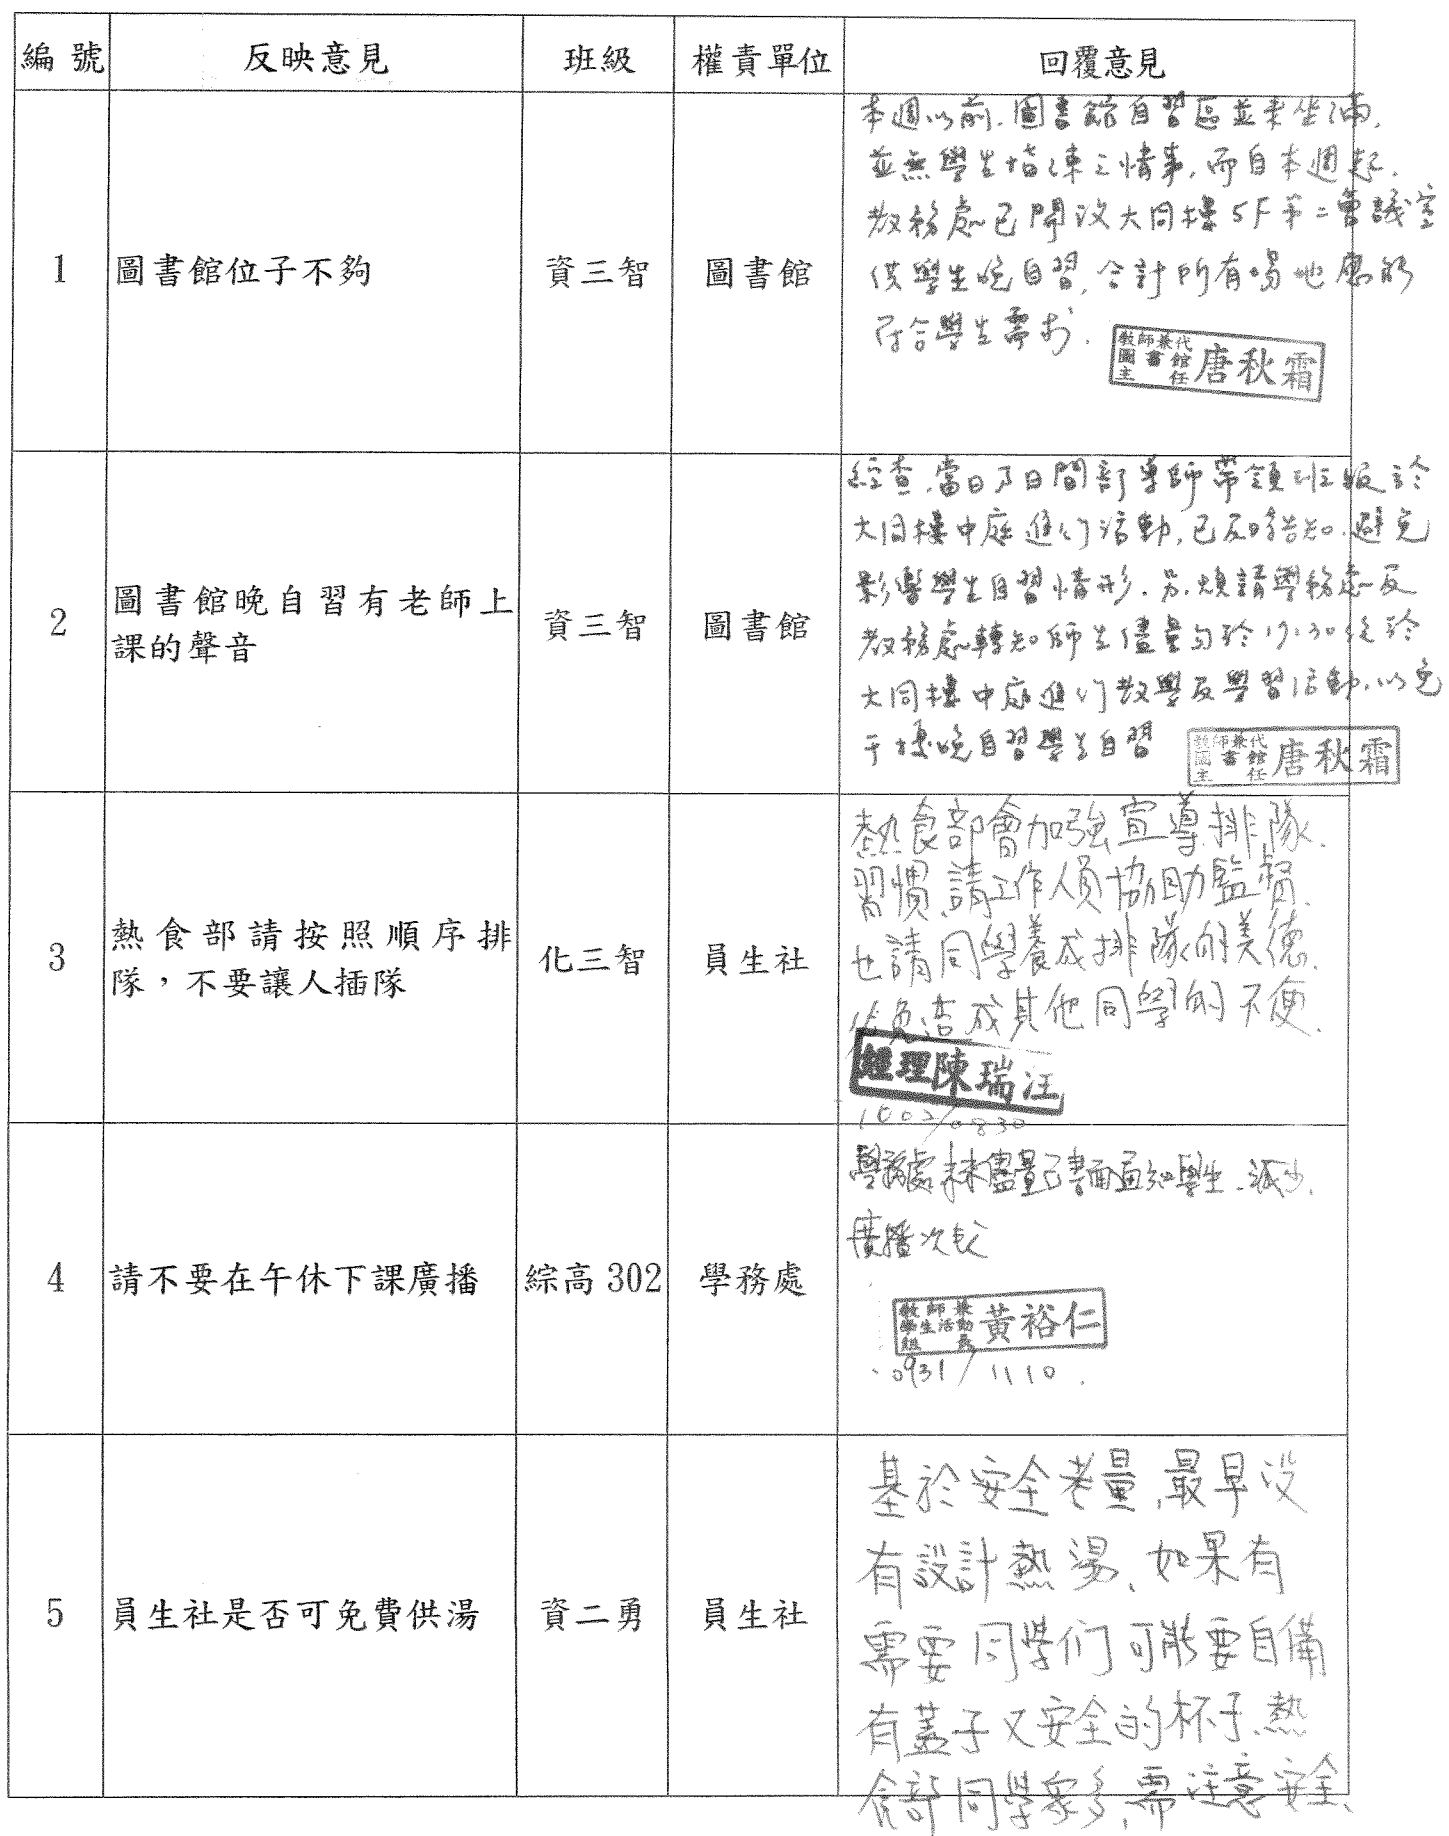 編號 反映意見 班級 權責單位 回覆意見
1 圖書館位子不夠 資三智 圖書館
本週以前,圖書館自習區並未坐滿,
並無學生培之情事,而自本週起,
教務處已開放大同樓5F第二會議室
供學生晚自習,合計所有場地應能
符合學生需求.
教師兼代圖書館主任 唐秋霜
2 圖書館晚自習有老師上
課的聲音
資三智 圖書館
經查,當日乃日間部導師帶領班級於
大同樓中庭進行活動,已及時告知,避免
影響學生自習情形.另,煩請學務處及
教務處轉知師生儘量勿於17:30後於
大同樓中庭進行教學及學習活動,以免
干擾晚自習學生自習
教師兼代圖書館主任 唐秋霜
3 熱食部請按照順序排
隊,不要讓人插隊
化三智 員生社
熱食部會加強宣導排隊.
習慣,請工作人員協助監督.
也請同學養成排隊的美德.
以免造成其他同學的不便.
經理陳瑞汪
/0830
4 請不要在午休下課廣播 綜高302 學務處
學務處未來儘量已書面通知學生、減少.
廣播次數
教師兼學生活動組長 黃裕仁
0931/1110.
5 員生社是否可免費供湯 資二勇 員生社
基於安全考量,最早沒
有設計熱湯、如果有
需要同學们可能要自備
有蓋子又安全的杯子、熱
食部同學眾多,需注意安全、